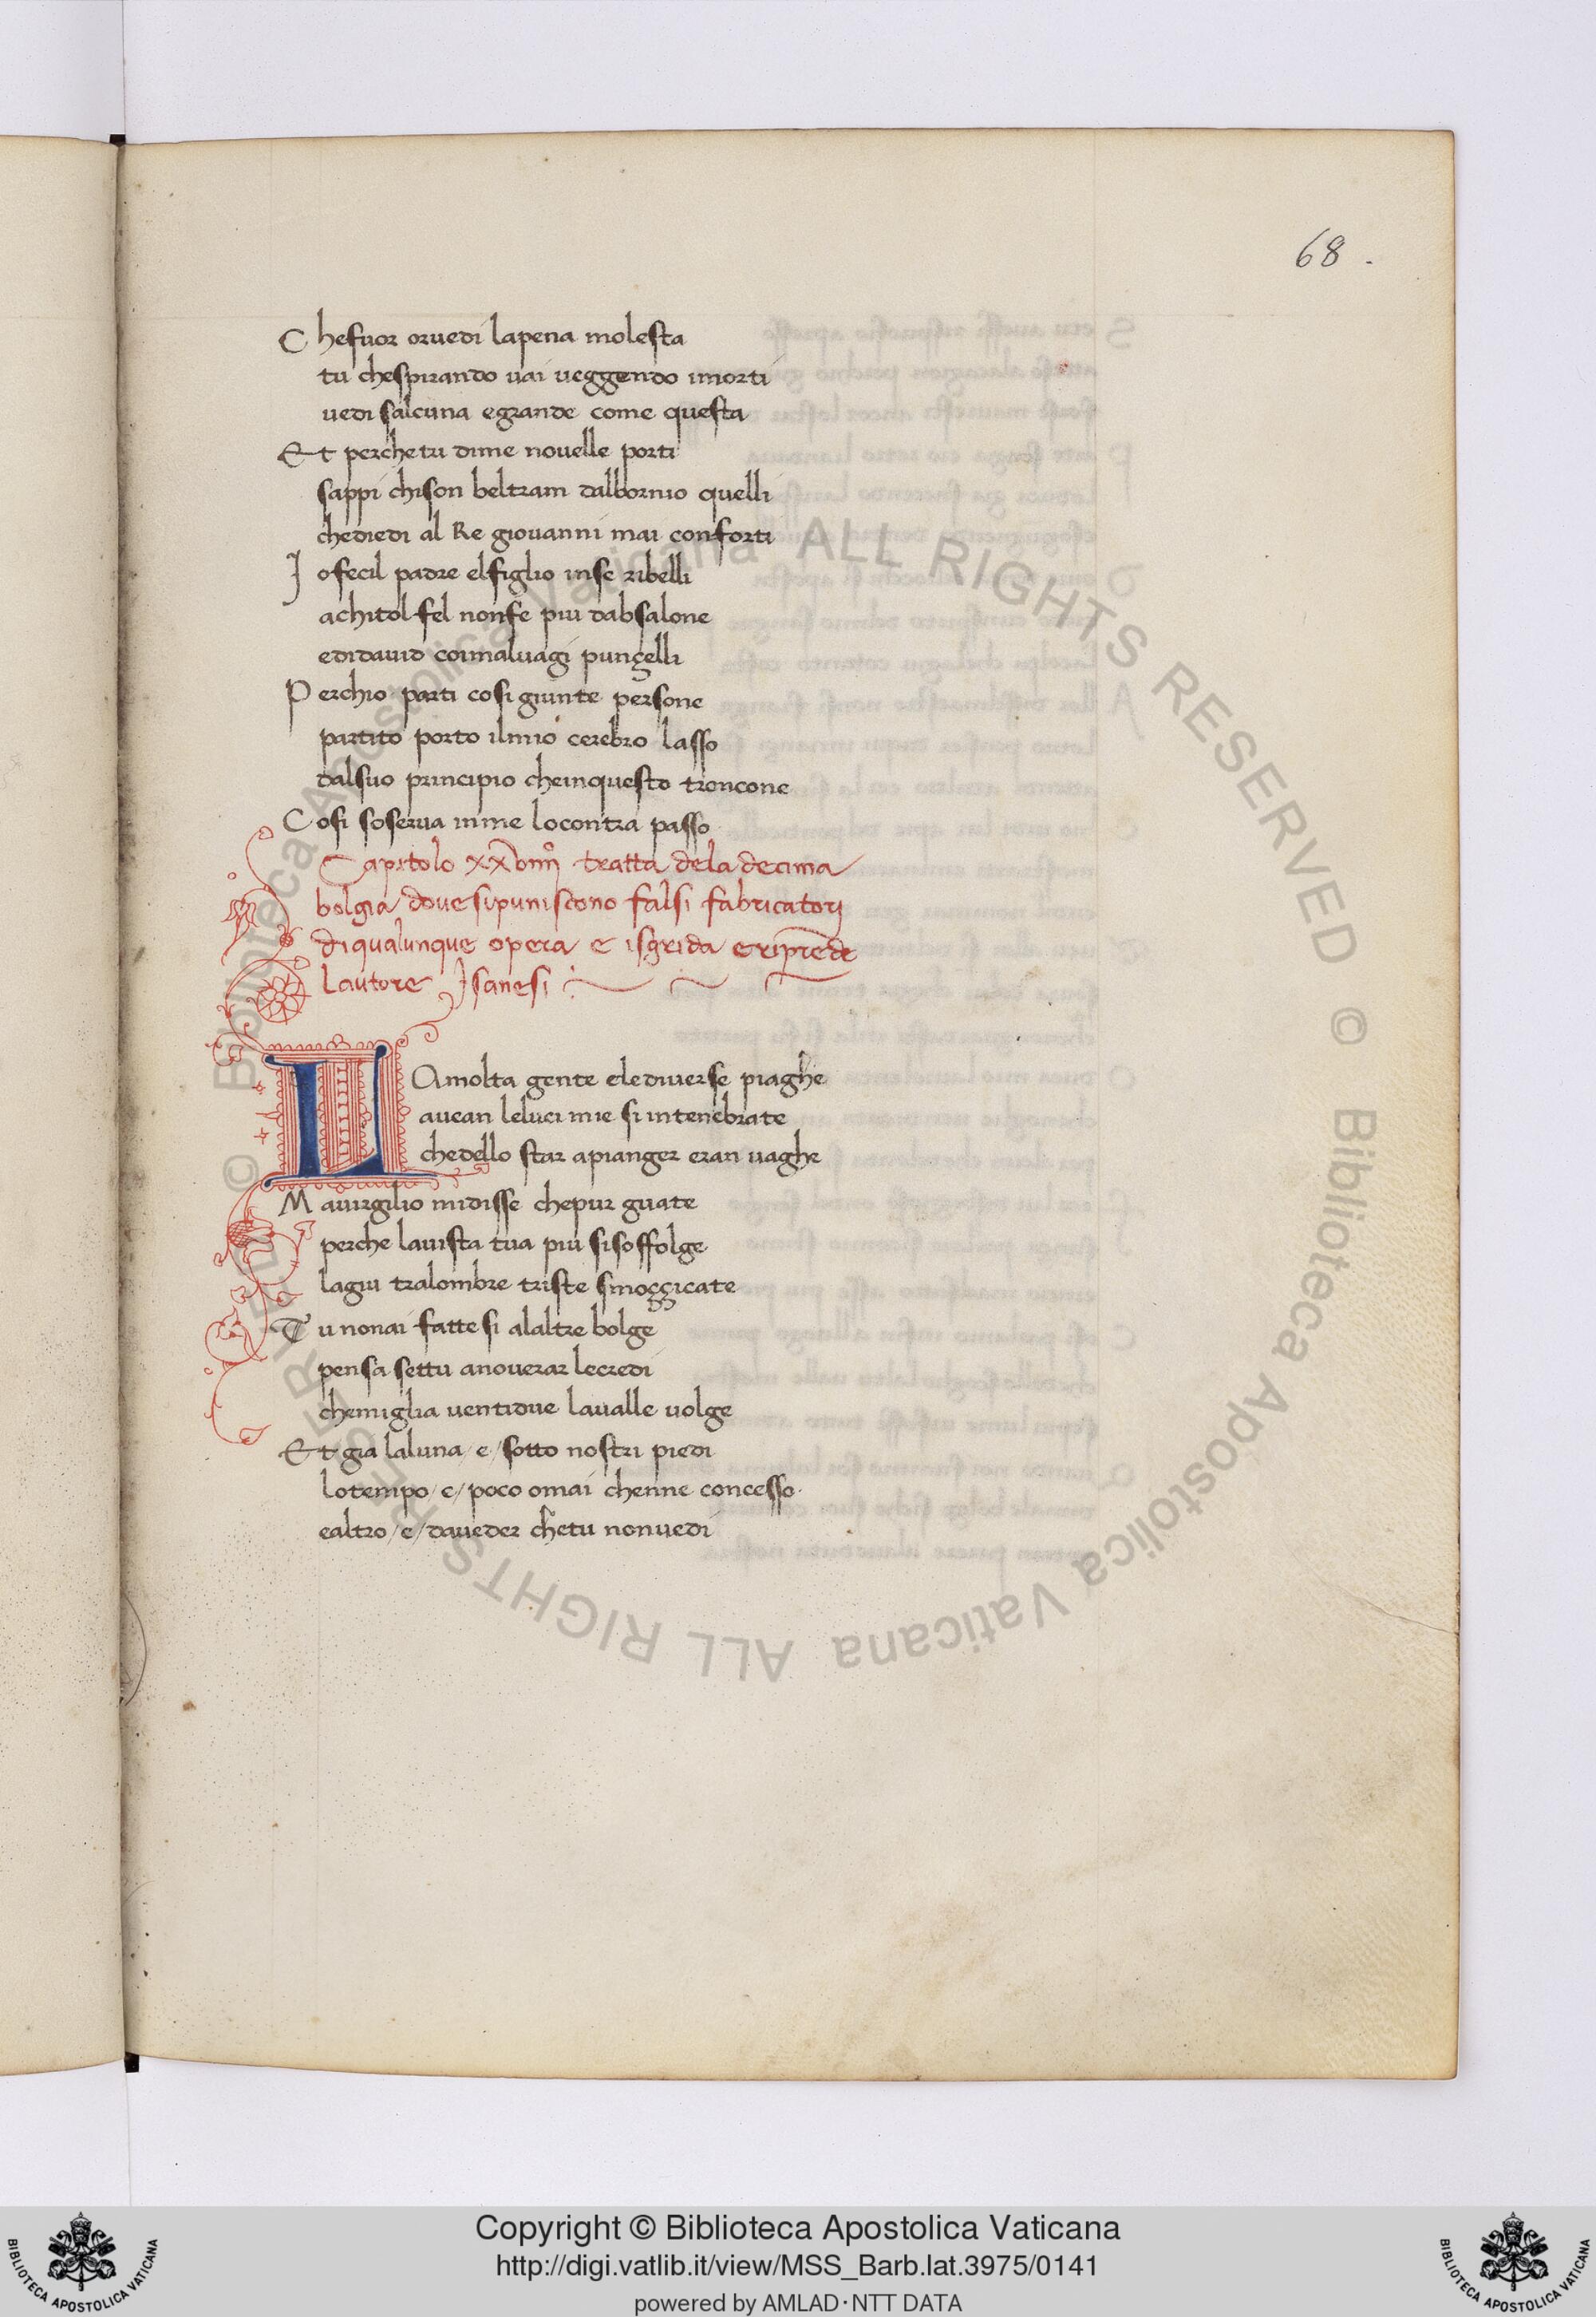 68.
Chefuor oruedi lapena molesta
tu chespirando uai ueggendo imorti
uedi salcuna egrande come questa
Et perchetu dime nouelle porti
sappi chison beltram dalbornio quelli
chediedi al Re giouanni mai conforti
Jofecil padre elfiglio inse ribelli
achitol fel nonfe piu dabsalone
edidauid coimaluagi punçelli
Perchio parti cosi giunte persone
partito porto ilmio cerebro lasso
dalsuo principio cheinquesto troncone
Cosi soserua inme locontra passo
Capitolo xxviiijº tratta dela decima
bolgia doue sipuniscono falsi fabricatorj
diqualunque opera e isgrida eriprēde
lautore Jsanesi
LAmolta gente elediuerse piaghe
auean leluci mie si intenebrate
chedello star apianger eran uaghe
Mauirgilio midisse chepur guate
perche lauista tua piu sisoffolge
lagiu tralombre triste smoççicate
Tu nonai fatte si alaltre bolge
pensa settu anouerar lecredi
chemiglia uentidue laualle uolge
Et gia laluna /e/ sotto nostri piedi
lotempo /e/ poco omai chenne concesso
ealtro /e/ daueder chetu nonuedi
© Biblioteca Apostolica Vaticana ALL RIGHTS RESERVED © Biblioteca Apostolica Vaticana ALL RIGHTS RESERVED
BIBLIOTECA APOSTOLICA VATICANA
Copyright © Biblioteca Apostolica Vaticana
http://digi.vatlib.it/view/MSS_Barb.lat.3975/0141
powered by AMLAD·NTT DATA
BIBLIOTECA APOSTOLICA VATICANA